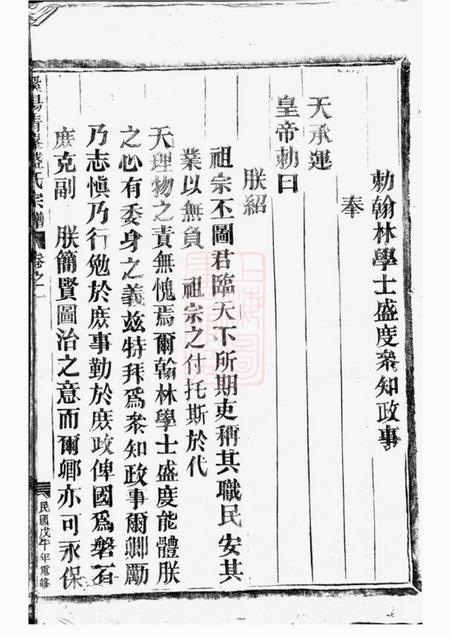 勅翰林學士盛度叅知政事
奉
天承運
皇帝勅曰
朕紹
祖宗丕圖君臨天下所期吏稱其職民安其
業以無負 祖宗之付托斯於代
天理物之責無愧焉爾翰林學士盛度能體朕
之心有委身之義兹特拜爲叅知政事爾卿勵
乃志慎乃行勉於庶事勤於庶政俾國爲磐石
庶克副 朕簡賢圖治之意而爾卿亦可永保
盛氏宗譜
卷之一
民國戊午年重修